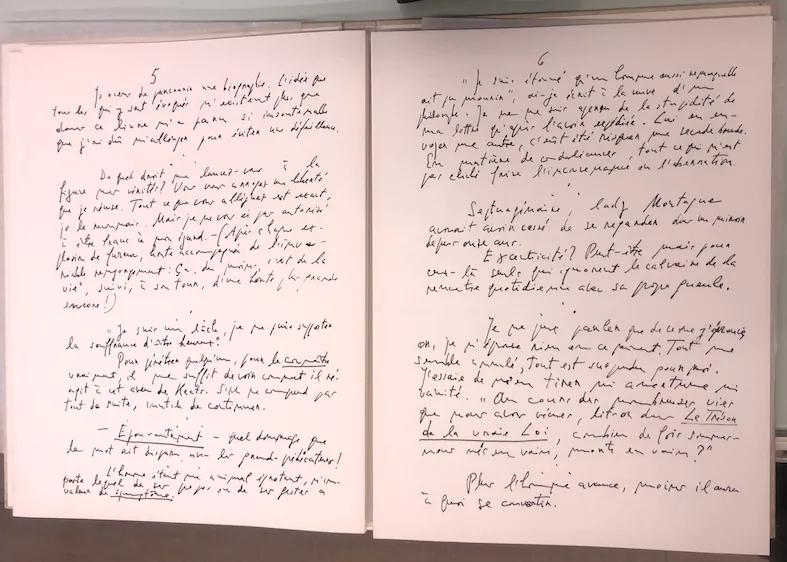 5
Je viens de parcourir une biographie. L'idée que
tous les qui y sont évoqués n'existent plus que
dans ce livre m'a paru si insoutenable
que j'ai dû m'allonger pour éviter une défaillance.
De quel droit me lancez-vous à la
figure mes vérités? Vous vous arrogez une liberté
que je récuse. Tout ce que vous alléguez est exact,
je le reconnais. Mais je ne vous ai pas autorisé
à être franc à mon égard. – (Après chaque ex-
plosion de fureur, honte accompagnée de l'inva-
riable rengorgement: Ça, du moins, c'est de la
vie", suivi, à son tour, d'une honte plus grande
encore!)
"Je suis un lâche, je ne puis supporter
la souffrance d'être heureux."
Pour pénétrer quelqu'un, pour le connaître
vraiment, il me suffit de voir comment il ré-
agit à cet aveu de Keats. S'il ne comprend pas
tout de suite, inutile de continuer.
– Epouvantement – quel dommage que
le mot ait disparu avec les grands prédicateurs!
L'homme étant un animal égrotant, n'im-
porte lequel de ses propos ou de ses gestes a
valeur de symptôme.
6
"Je suis étonné qu'un homme aussi remarquable
ait pu mourir", ai-je écrit à la veuve d'un
philosophe. Je ne me suis aperçu de la stupidité de
ma lettre qu'après l'avoir expédiée. Lui en en-
voyer une autre, c'eût été risquer une seconde bourde.
En matière de condoléances, tout ce qui n'est
pas cliché frise l'inconvenance ou l'aberration.
Septuagénaire, lady Montague
avouait avoir cessé de se regarder dans un miroir
depuis onze ans.
Excentricité? Peut-être, mais pour
ceux-là seuls qui ignorent le calvaire de la
rencontre quotidienne avec sa propre gueule.
Je ne puis parler que de ce que j'éprouve;
or, je n'éprouve rien en ce moment. Tout me
semble annulé, tout est suspendu pour moi.
J'essaie de n'en tirer ni amertume ni
vanité. "Au cours des nombreuses vies
que nous avons vécues, lit-on dans Le Trésor
de la vraie Loi, combien de fois sommes-
nous nés en vain, morts en vain?"
Plus l'homme avance, moins il aura
à quoi se convertir.